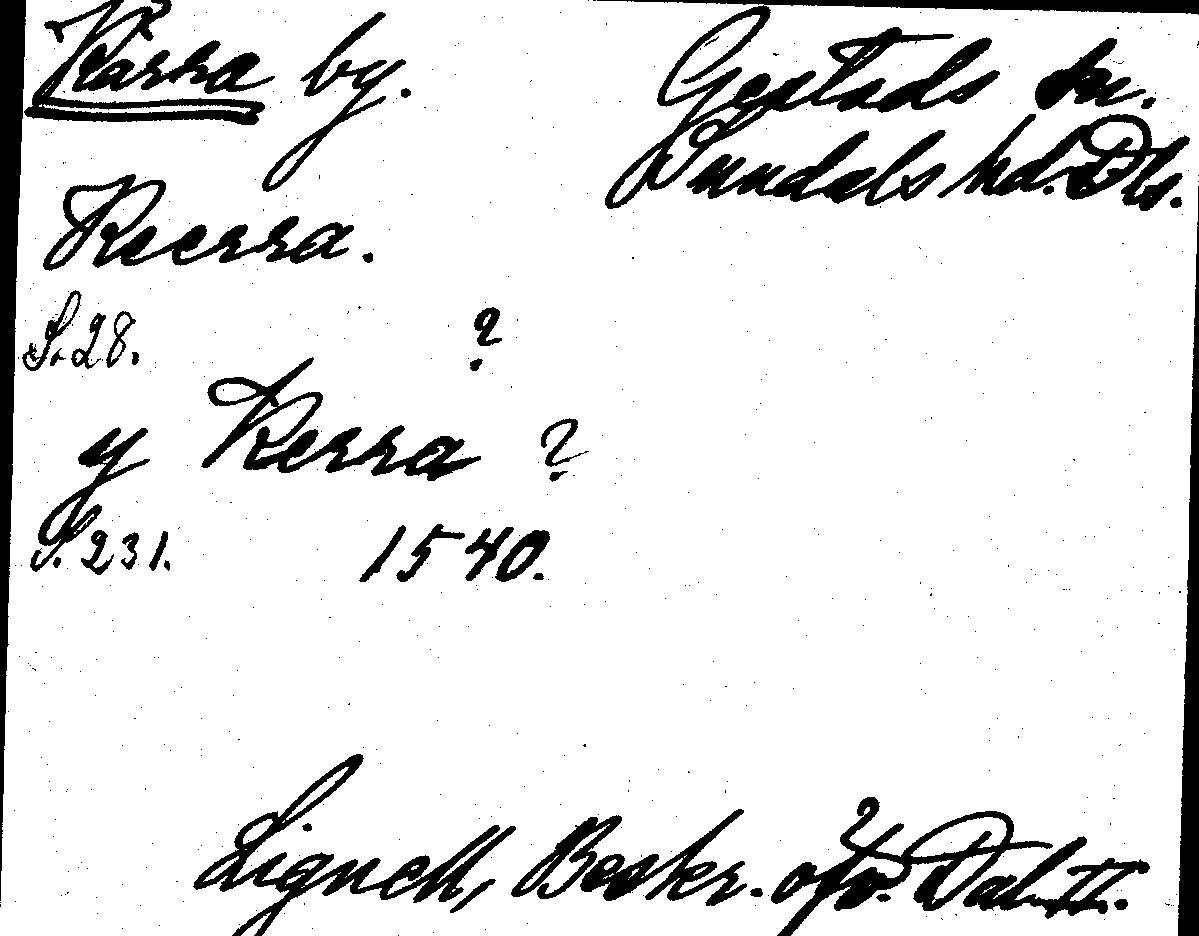 Kärra by.
Gestads sn.
Sundals hd. Dls.
Kicerra.
S. 28. ?
y Kerra ?
S. 231. 1540.
Lignell, Beskr. öfv. Dal. II.